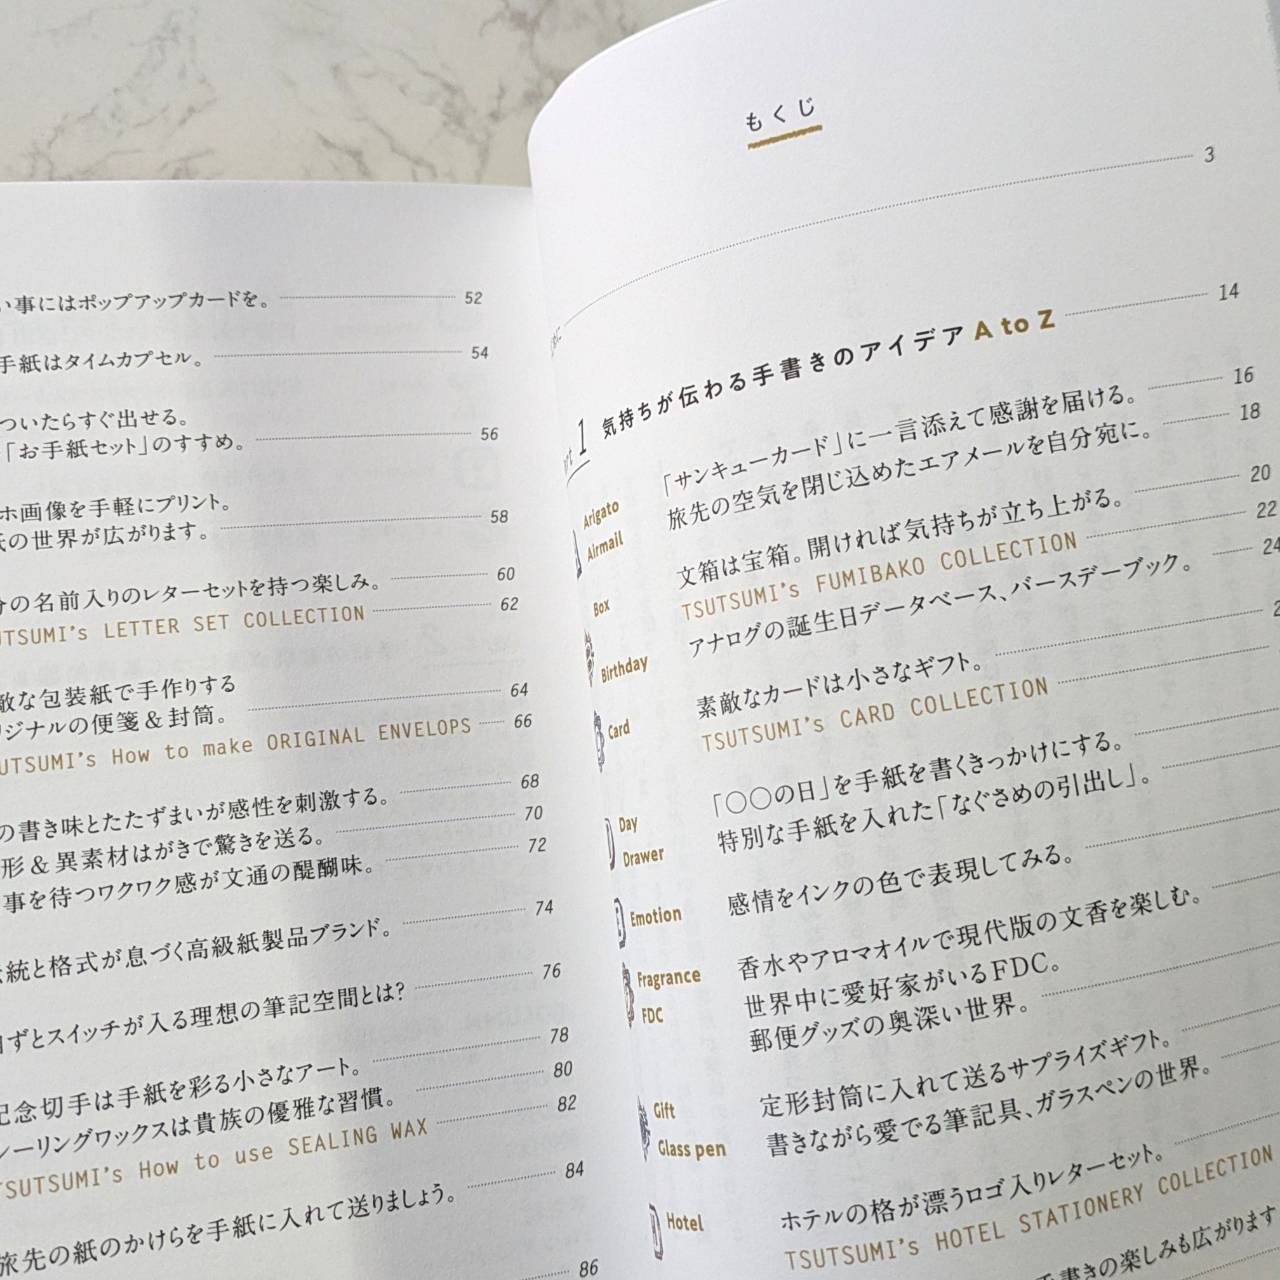 い事にはポップアップカードを。 52
手紙はタイムカプセル。 54
ついたらすぐ出せる。
「お手紙セット」のすすめ。 56
ホ画像を手軽にプリント。
の世界が広がります。 58
の名前入りのレターセットを持つ楽しみ。 60
TSUTSUMI's LETTER SET COLLECTION 62
敵な包装紙で手作りする
リジナルの便箋＆封筒。 64
TSUTSUMI's How to make ORIGINAL ENVELOPS 66
の書き味とたたずまいが感性を刺激する。 68
形＆異素材はがきで驚きを送る。 70
事を待つワクワク感が文通の醍醐味。 72
統と格式が息づく高級紙製品ブランド。 74
ずとスイッチが入る理想の筆記空間とは? 76
記念切手は手紙を彩る小さなアート。 78
シーリングワックスは貴族の優雅な習慣。 80
TSUTSUMI's How to use SEALING WAX 82
旅先の紙のかけらを手紙に入れて送りましょう。 84
86
もくじ
3
1 気持ちが伝わる手書きのアイデア A to Z 14
Arigato 「サンキューカード」に一言添えて感謝を届ける。 16
Airmail 旅先の空気を閉じ込めたエアメールを自分宛に。 18
Box 文箱は宝箱。開ければ気持ちが立ち上がる。 20
TSUTSUMI's FUMIBAKO COLLECTION 22
Birthday アナログの誕生日データベース、バースデーブック。 24
Card 素敵なカードは小さなギフト。
TSUTSUMI's CARD COLLECTION
D Day 「〇〇の日」を手紙を書くきっかけにする。
Drawer 特別な手紙を入れた「なぐさめの引出し」。
E Emotion 感情をインクの色で表現してみる。
Fragrance 香水やアロマオイルで現代版の文香を楽しむ。
FDC 世界中に愛好家がいるFDC。
郵便グッズの奥深い世界。
Gift 定形封筒に入れて送るサプライズギフト。
Glass pen 書きながら愛でる筆記具、ガラスペンの世界。
H Hotel ホテルの格が漂うロゴ入りレターセット。
TSUTSUMI's HOTEL STATIONERY COLLECTION
手書きの楽しみも広がります